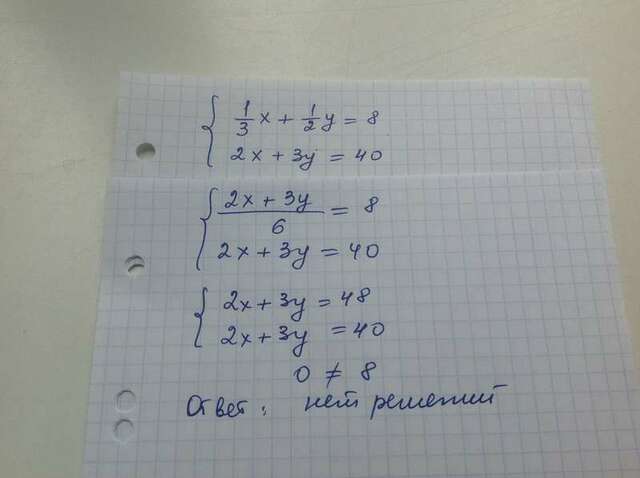 { 1/3 x + 1/2 y = 8
2x + 3y = 40
{ (2x + 3y)/6 = 8
2x + 3y = 40
{ 2x + 3y = 48
2x + 3y = 40
0 ≠ 8
Ответ: нет решений